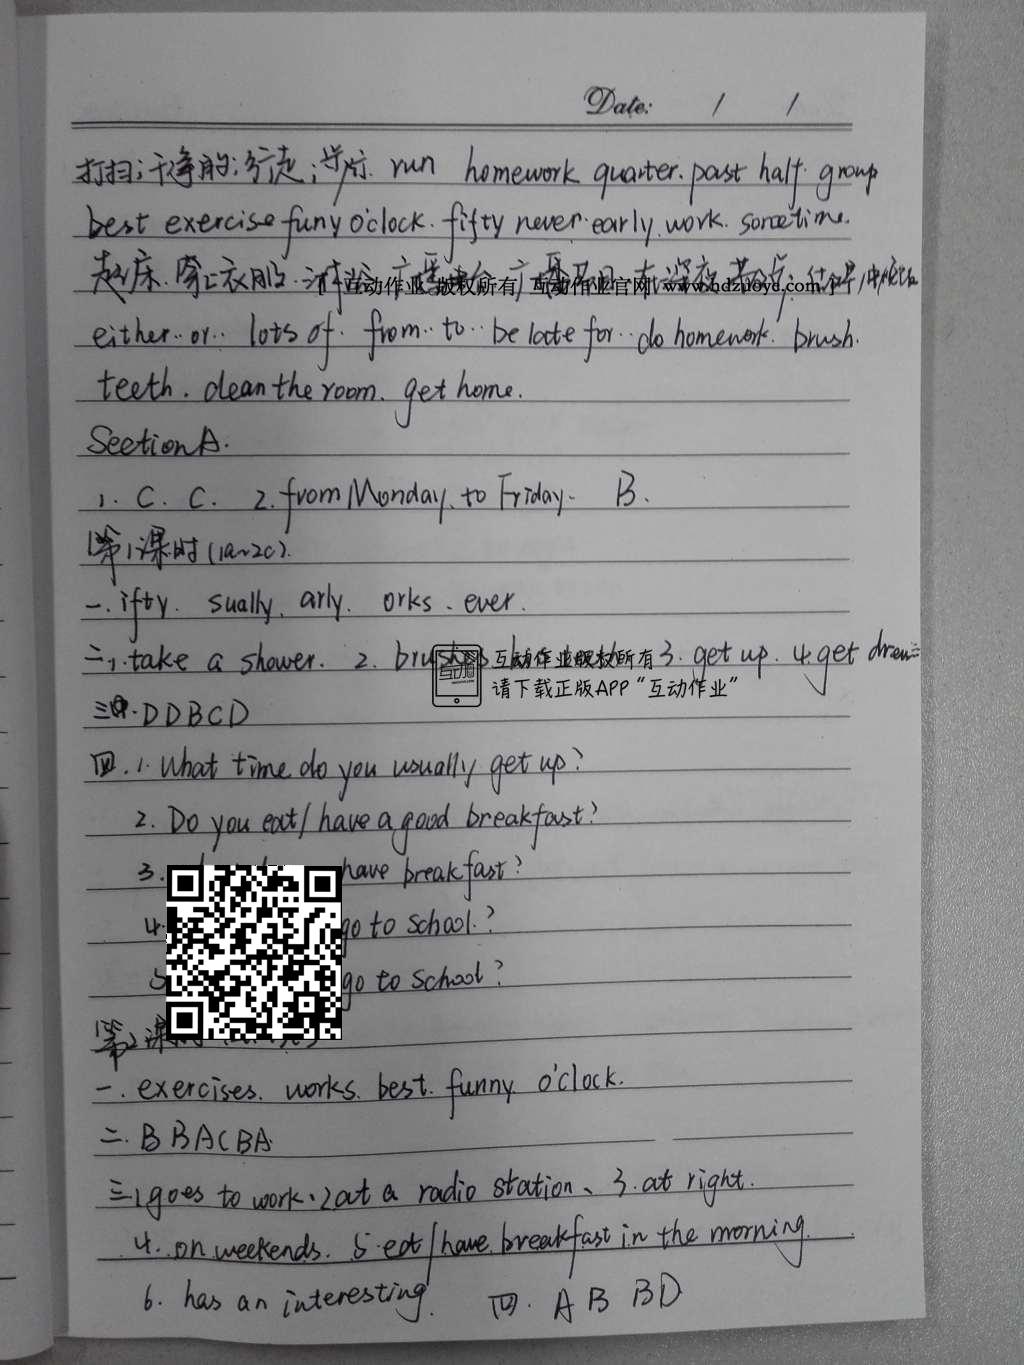 Date: / /
打扫;干净的;行走; run homework quarter. past half. group
best exercise funy o'clock. fifty never. early. work. sometime.
起床. 穿上衣服.
互动作业 版权所有 互动作业官网 www.hdzuoye.com
either·· or·· lots of. from·· to·· be late for·· do homework. brush.
teeth. clean the room. get home.
Section A.
1. C. C. 2. from Monday. to Friday. B.
第1课时(1a~2c).
一. ifty. sually. arly. orks. ever.
二.1. take a shower. 2. 3. get up. 4. get
互动作业版权所有
请下载正版APP“互动作业”
三. DDBCD
四. 1. What time do you usually get up?
2. Do you eat/have a good breakfast?
3. have breakfast?
4. go to school.?
5 go to school?
第2课
一. exercises. works. best. funny. o'clock.
二. BBACBA
三1goes to work. 2at a radio station、3. at right.
4. on weekends. 5. eat/have breakfast in the morning.
6. has an interesting. 四. A B BD